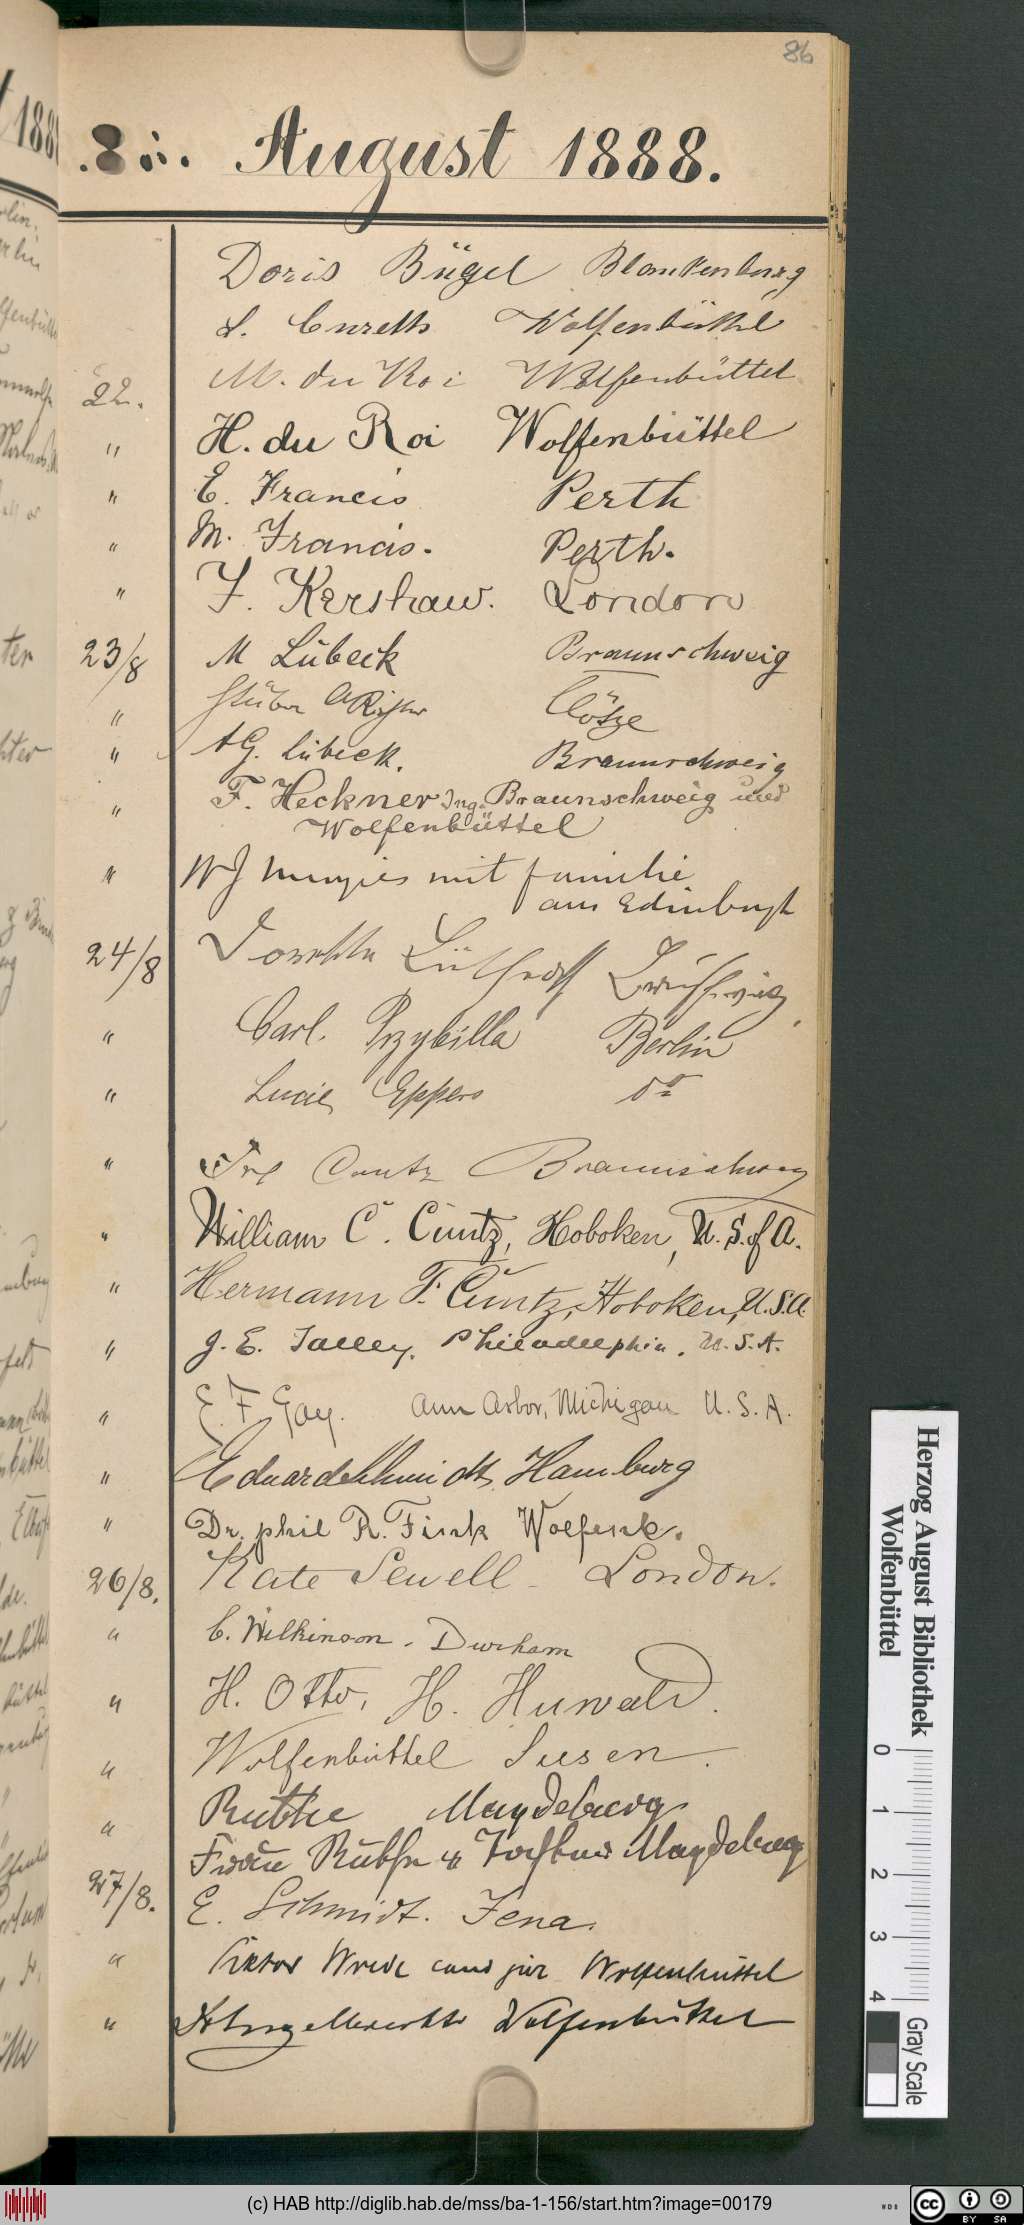 86
8. August 1888.
Doris Bügel Blankenburg
L. Curetts Wolfenbüttel
22. M. du Roi Wolfenbüttel
" H. du Roi Wolfenbüttel
" E. Francis Perth
" M. Francis. Perth.
" F. Kershaw. London
23/8 M Lübeck Braunschweig
" Clötze
" AG. Lübeck. Braunschweig
" F. Heckner Ing. Braunschweig und
Wolfenbüttel
" WJ Menzies mit Familie
aus Edinburgh
24/8 Dorette
" Carl. Przybilla Berlin
" Lucie Eppers do
" Cuntz Braunschweig
" William C. Cuntz, Hoboken, U. S. of A.
" Hermann F. Cuntz, Hoboken, U.S.A.
" J. E. Talley. Philadelphia. U. S. A.
" E. F. Gay. Ann Arbor, Michigan U. S. A.
" Eduard Schmidt, Hamburg
" Dr. phil R. Fink Wolfenb.
26/8. Kate Sewell - London.
" C. Wilkinson - Durham
" H. Otto, H. Huwald.
" Wolfenbüttel Seesen.
" Rubke Magdeburg
27/8. E. Schmidt. Jena.
" Viktor Wrede cand jur Wolfenbüttel
" Wolfenbüttel
Herzog August Bibliothek
Wolfenbüttel
0 1 2 3 4
Gray Scale
(c) HAB http://diglib.hab.de/mss/ba-1-156/start.htm?image=00179
WDB
CC BY SA